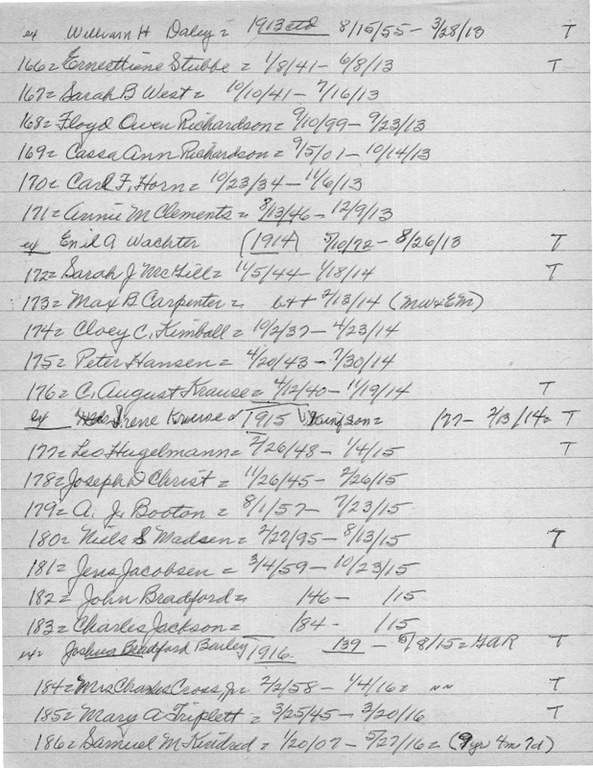 ex William H Daley = 1913 ctd 8/15/55 - 3/28/13 T
166 = Ernesttiene Stubbe = 1/8/41 - 6/8/13 T
167 = Sarah B West = 10/10/41 - 7/16/13
168 = Floyd Owen Richardson = 9/10/99 - 9/23/13
169 = Cassa Ann Richardson = 9/5/01 - 10/14/13
170 = Carl F. Horn = 10/23/34 - 11/6/13
171 = Annie M Clements = 8/13/46 - 12/9/13
ex Enid A Wachter (1914) 5/10/72 - 8/26/13 T
172 = Sarah J McGill = 11/5/44 - 1/18/14 T
173 = Max B Carpenter = b++ 2/13/14 (mw+Em)
174 = Cloey C. Kimball = 10/2/37 - 4/23/14
175 = Peter Hansen = 4/20/43 - 7/30/14
176 = C. August Krause = 4/12/40 - 11/19/14 T
ex Irene Krause 1915 /77 - 2/13/14 = T
177 = Leo Hugelmann = 2/26/48 - 1/4/15 T
178 = Joseph D Christ = 11/26/45 - 2/26/15
179 = A. J. Booton = 8/1/57 - 7/23/15
180 = Niels S Madsen = 2/27/95 - 8/13/15 T
181 = Jens Jacobsen = 3/4/59 - 10/23/15
182 = John Bradford = /46 - /15
183 = Charles Jackson = /84 - /15
ex = Joshua Bradford Bailey 1916 /39 - /8/15 = GAR T
184 = Mrs Charles Cross, Jr = 2/2/58 - 1/4/16 = " " T
185 = Mary A Triplett = 3/25/45 - 3/20/16 T
186 = Samuel M Kindred = 1/20/07 - 5/27/16 = (9yr 4m 7d)